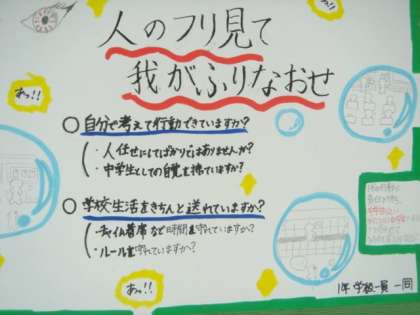 人のフリ見て
我がふりなおせ
あっ!!
あっ!!
○自分で考えて行動できていますか?
・人任せにしてばかりではありませんか?
・中学生としての自覚を持っていますか?
○学校生活をきちんと送れていますか?
・チャイム着席など時間を守れていますか?
・ルールを守れていますか?
あっ!!
1年 学校一員 一同